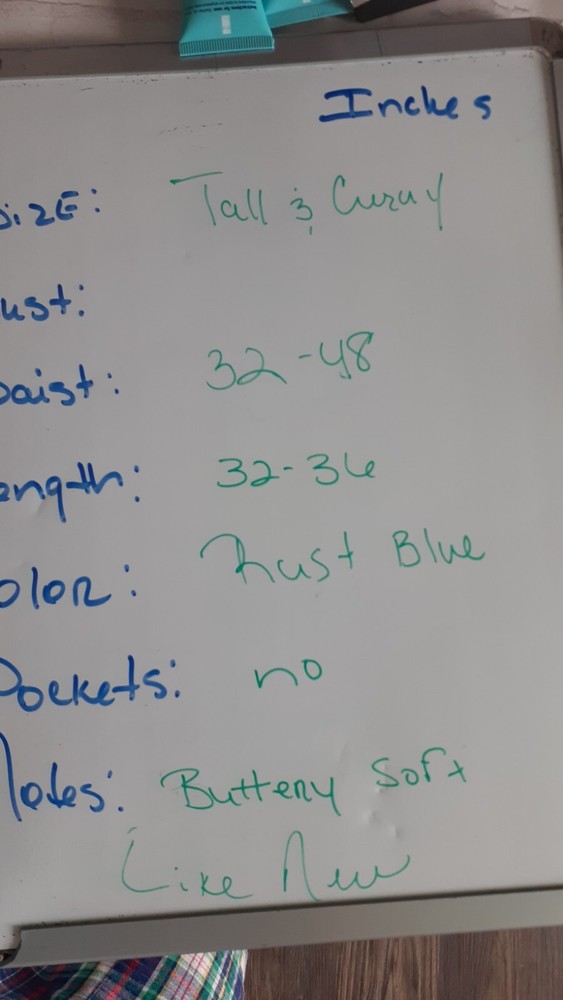 Inches
Size: Tall & Curvy
ust:
aist: 32-48
ength: 32-36
olor: Rust Blue
Pockets: no
Notes: Buttery Soft
Like New